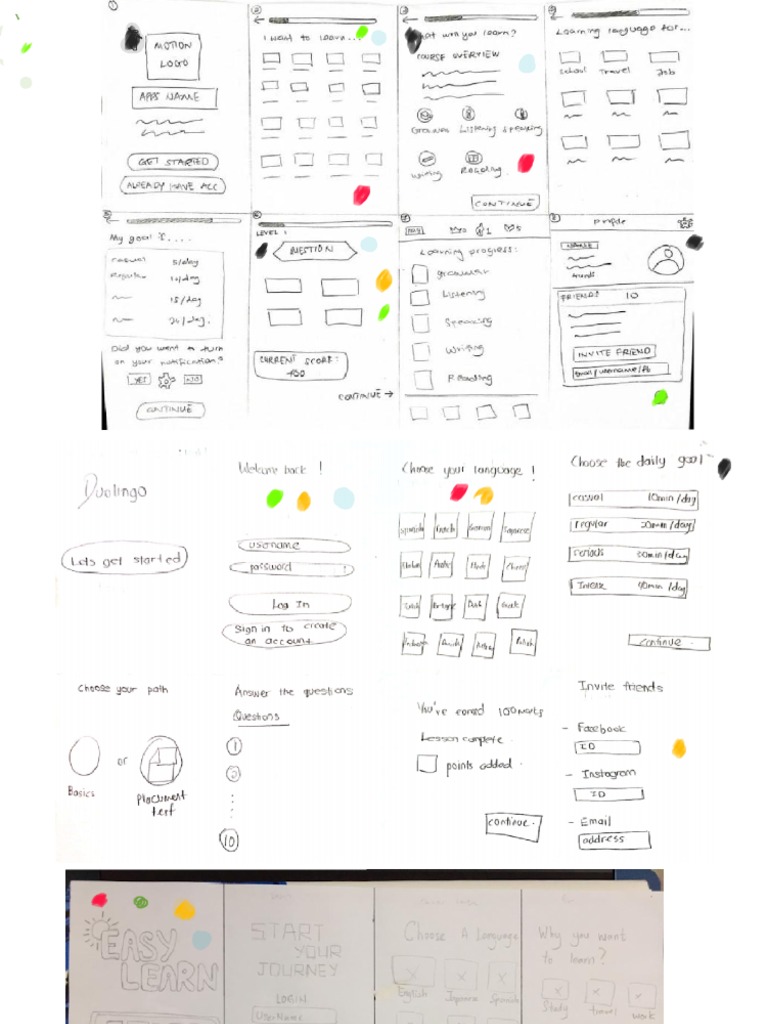 1
MOTION
LOGO
APPS NAME
GET STARTED
ALREADY HAVE ACC
2
I want to learn...
3
COURSE OVERVIEW
Listening
Speaking
Writing
Reading
CONTINUE
4
Learning language for...
School
Travel
Job
5
My goal is....
casual 5/day
Regular 10/day
15/day
20/day.
Did you want to turn
on your notification?
YES
NO
CONTINUE
6
LEVEL 1
QUESTION
CURRENT SCORE:
CONTINUE →
7
Learning progress:
grammar
Listening
Speaking
Writing
Reading
8
Profile
NAME
friends
FRIENDS 10
INVITE FRIEND
Email/username/fb
Duolingo
Lets get started
Welcome back !
username
password
Log In
Sign in to create
an account
Choose your language !
Spanish
French
German
Japanese
Choose the daily goal
casual 10min/day
regular 20min/day
serious 30min/day
Intense 40min/day
continue
Choose your path
or
Basics
Placement
test
Answer the questions
Questions
1
2
10
You're earned 100marks
Lesson complete
points added.
continue.
Invite friends
- Facebook
ID
- Instagram
ID
- Email
address
EASY
LEARN
START
YOUR
JOURNEY
LOGIN
UserName
Choose A Language
English
Japanese
Spanish
Why you want
to learn?
Study
travel
work